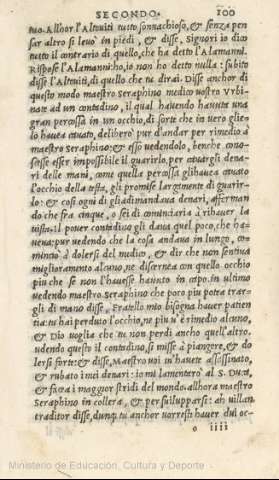 SECONDO. 100
tuo. Allhor l'Altoviti tutto sonnachioso, & senza pen
sar altro si levò in piedi, & disse, Signori io dico
tutto il contrario di quello, che ha detto l'Alamanni.
Rispose l'Alamanni: ho, io non ho detto nulla: subito
disse l'Altoviti, di quello che tu dirai. Disse anchor di
questo modo maestro Seraphino medico vostro Urbi-
nate ad un contadino, il qual havendo havuta una
gran percossa in un occhio, di sorte che in vero glie-
lo havea cavato, deliberò pur d'andar per rimedio à
maestro Seraphino: & esso vedendolo, benche cono-
scesse esser impossibile il guarirlo, per cavargli dena-
ri delle mani, come quella percossa gli havea cavato
l'occhio della testa, gli promise largamente di guarir-
lo: & così ogni dì gli adimandava denari, afferman
do che fra cinque, o sei dì cominciaria à rihaver la
vista. il pover contadino gli dava quel poco, che ha-
vena: pur vedendo che la cosa andava in lungo, co-
minciò à dolersi del medico, & dir che non sentiva
miglioramento alcuno, ne discernea con quello occhio
piu che se non l'havesse havuto in capo. in ultimo
vedendo maestro Seraphino che poco piu potea trar-
gli di mano disse, Fratello mio bisogna haver patien
tia: tu hai perduto l'occhio, ne piu v'è rimedio alcuno,
& Dio voglia che tu non perdi ancho quell'altro.
udendo questo il contadino, si misse à piangere, & do
lersi forte: & disse, Maestro voi m'havete assassinato,
& rubato i mei denari: io mi lamentero al S. Duca, &
facea i maggior stridi del mondo. allhora maestro
Seraphino in collera, & per svilupparsi: ah villan
traditor disse, dunque tu anchor vorresti haver dui oc-
o iiii
Ministerio de Educación, Cultura y Deporte